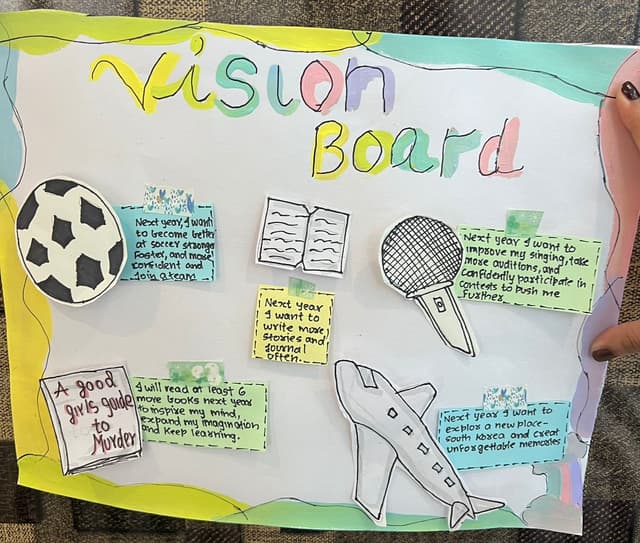 Vision
Board
Next year, I want
to become better
at soccer stronger
Faster, and more
confident and
Join a team
Next year
I want to
write more
stories and
Journal
often.
Next year I want to
improve my singing, take
more auditions, and
confidently participate in
contests to push me
further
A good
girls guide
to
Murder
I will read at least 6
more books next year
to inspire my mind,
expand my imagination
and keep learning.
Next year I want to
explor a new place-
South Korea and creat
unforgettable memories